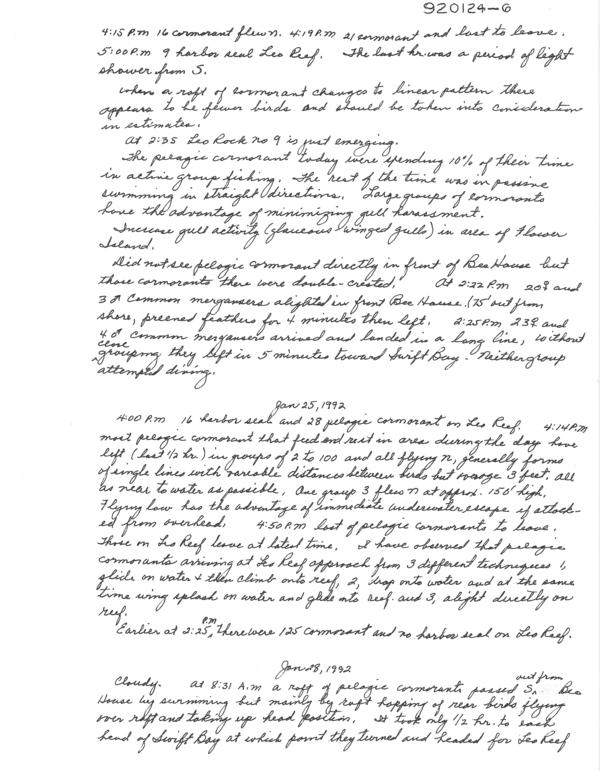 920124-6
4:15 P.m 16 cormorant flew n. 4:19 P.m 21 cormorant and last to leave.
5:00 P.m 9 harbor seal Leo Reef. The last hr. was a period of light
shower from S.
When a raft of cormorant changes to linear pattern there
appears to be fewer birds and should be taken into consideration
in estimates.
At 2:35 Leo Rock no 9 is just emerging.
The pelagic cormorant today were spending 10% of their time
in active group fishing. The rest of the time was in passive
swimming in straight directions. Large groups of cormorants
have the advantage of minimizing gull harassment.
Increase gull activity (glaucous-winged gulls) in area of Flower
Island.
Did not see pelagic cormorant directly in front of Bee House but
those cormorants there were double-crested. At 2:22 P.m 20♀ and
3♂ Common mergansers alighted in front Bee House. (75' out from
shore, preened feathers for 4 minutes then left. 2:25 P.m 23♀ and
4♂ common mergansers arrived and landed in a long line, without
close
grouping they left in 5 minutes toward Swift Bay. Neither group
attempted diving.
Jan 25, 1992
4:00 P.M 16 harbor seal and 28 pelagic cormorant on Leo Reef. 4:14 P.M
most pelagic cormorant that feed and rest in area during the day have
left (last 1/2 hr.) in groups of 2 to 100 and all flying n, generally forms
of single lines with variable distances between birds but average 3 feet. all
as near to water as possible. One group 3 flew n at approx. 150' high.
Flying low has the advantage of immediate underwater escape if attack-
ed from overhead. 4:50 P.M last of pelagic cormorants to leave.
Those on Leo Reef leave at latest time. I have observed that pelagic
cormorants arriving at Leo Reef approach from 3 different techniques 1,
glide on water & then climb onto reef, 2, drop onto water and at the same
time wing splash on water and glide into reef. and 3, alight directly on
reef.
Earlier at 2:25 P.M, there were 125 cormorant and no harbor seal on Leo Reef.
Jan 28, 1992
Cloudy. At 8:31 A.m a raft of pelagic cormorants passed S, out from Bee
House by swimming but mainly by raft hopping of rear birds flying
over raft and taking up head position. It took only 1/2 hr. to each
head of Swift Bay at which point they turned and headed for Leo Reef